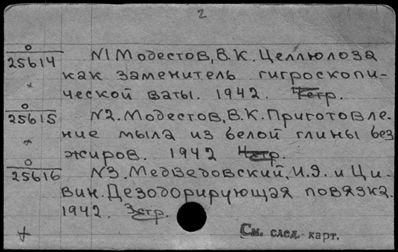 2
0
25614 N1 Модестов, В.К. Целлюлоза
как заменитель гигроскопи-
ческой ваты. 1942. 7стр.
0
25615 N2. Модестов, В.К. Приготовле-
ние мыла из белой глины без
жиров. 1942 стр.
0
25616 N3. Медведовский, И.Э. и Ци-
вин. Дезодорирующая повязка.
1942. 3стр.
См. след. карт.